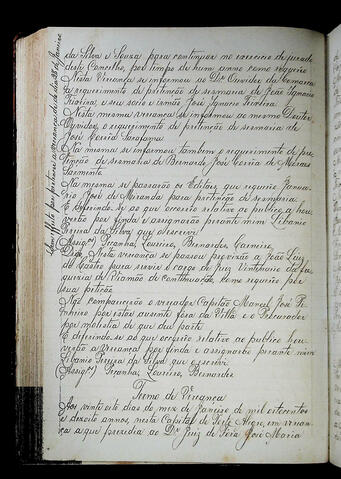 da Silva e Souza para continuar no exercicio de jurado
deste Concelho, por tempo de hum anno como requerêo
Nesta Vereança se informou ao Dr. Ouvidor da Comarca
o requerimento de pertenção de sesmaria de João Ignacio
Teixeira, e seu socio e irmão José Ignacio Teixeira.
Nesta mesma vereança se informou ao mesmo Doutor
Ouvidor, o requerimento de pertenção de sesmaria de
José Corrêa
Na mesma se informou tambem o requerimento de per-
tenção de sesmaria de Bernardo José Corrêa de Moraes
Sarmento.
Na mesma se passarão os Editaes que requerêo Janua-
rio José de Miranda para pertenção de sesmaria
E deferindo se ao que occorrêo relativo ao publico, a hou-
verão por finda e assignarão perante mim Libanio
Pereira da Silva que o escrevi
Assigdos) Peçanha, Loureiro, Bernardes, Carneiro,
Digo, Nesta vereança se passou provisão a João Luiz
de Castro para servir o cargo de juiz Vintenario da fre-
guezia de Viamão de continuação como requerêo por
sua petição
Não compareceo o vereador Capitão Manoel José Pi-
nheiro por estar ausente fora da Villa e o Procurador
por molestia de que deo parte
E deferindo-se ao que occorrêo relativo ao publico hou-
verão a vereança por finda e assignarão perante mim
Libanio Pereira da Silva que o escrevi
Assigdos) Peçanha, Loureiro, Bernardes
Termo de Vereança
Aos vinte oito dias do mez de Janeiro de mil oitocentos
e dezoito annos, nesta Capital de Porto Alegre, em verean-
ça a que prezidio ao Dr. Juiz de Fora José Maria
pertence a vereança de 28 de Janeiro